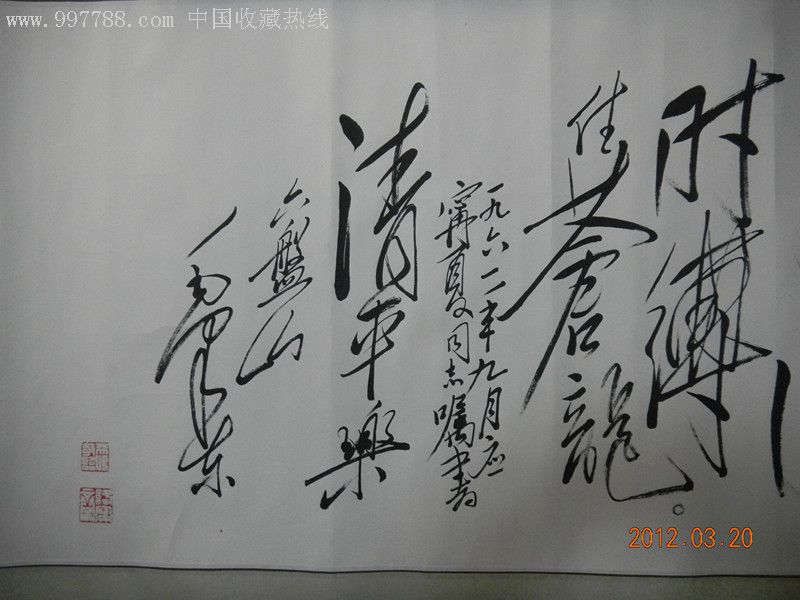 www.997788.com 中国收藏热线
时缚
住蒼龍。
一九六一年九月应
寧夏同志嘱書
清平樂
六盤山
毛泽东
2012.03.20